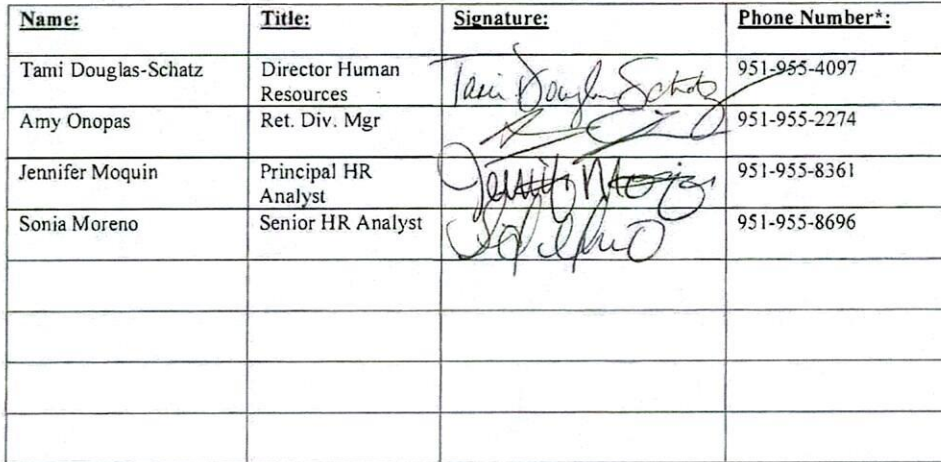 Name: Title: Signature: Phone Number*:
Tami Douglas-Schatz Director Human Resources Tami Douglas-Schatz 951-955-4097
Amy Onopas Ret. Div. Mgr 951-955-2274
Jennifer Moquin Principal HR Analyst 951-955-8361
Sonia Moreno Senior HR Analyst 951-955-8696